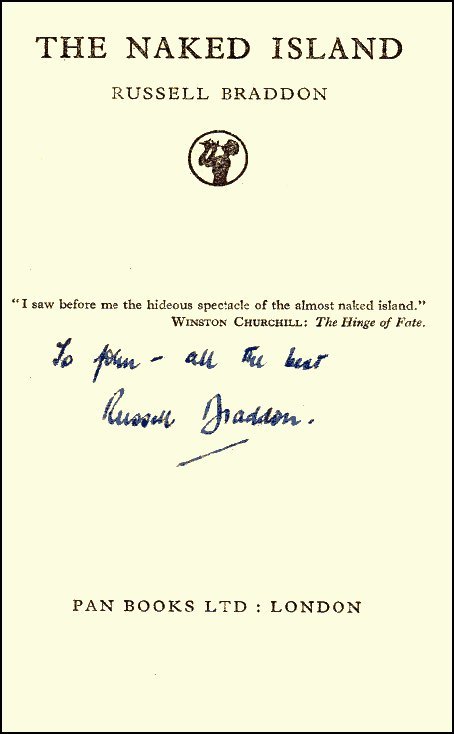 THE NAKED ISLAND
RUSSELL BRADDON
"I saw before me the hideous spectacle of the almost naked island."
WINSTON CHURCHILL: The Hinge of Fate.
To John – all the best
Russell Braddon.
PAN BOOKS LTD : LONDON